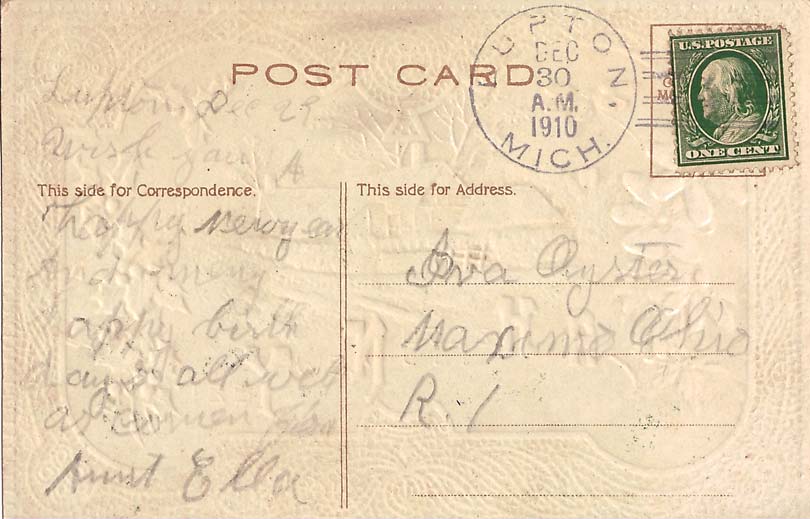 POST CARD
LUPTON. MICH.
DEC
30
A.M.
1910
U.S. POSTAGE
ONE CENT
Lupton, Dec 29
Wish you A
This side for Correspondence.
Happy New year
And meny
happy birth
days all
Aunt Ella
This side for Address.
Iva Oyster
Maximo Ohio
R. 1